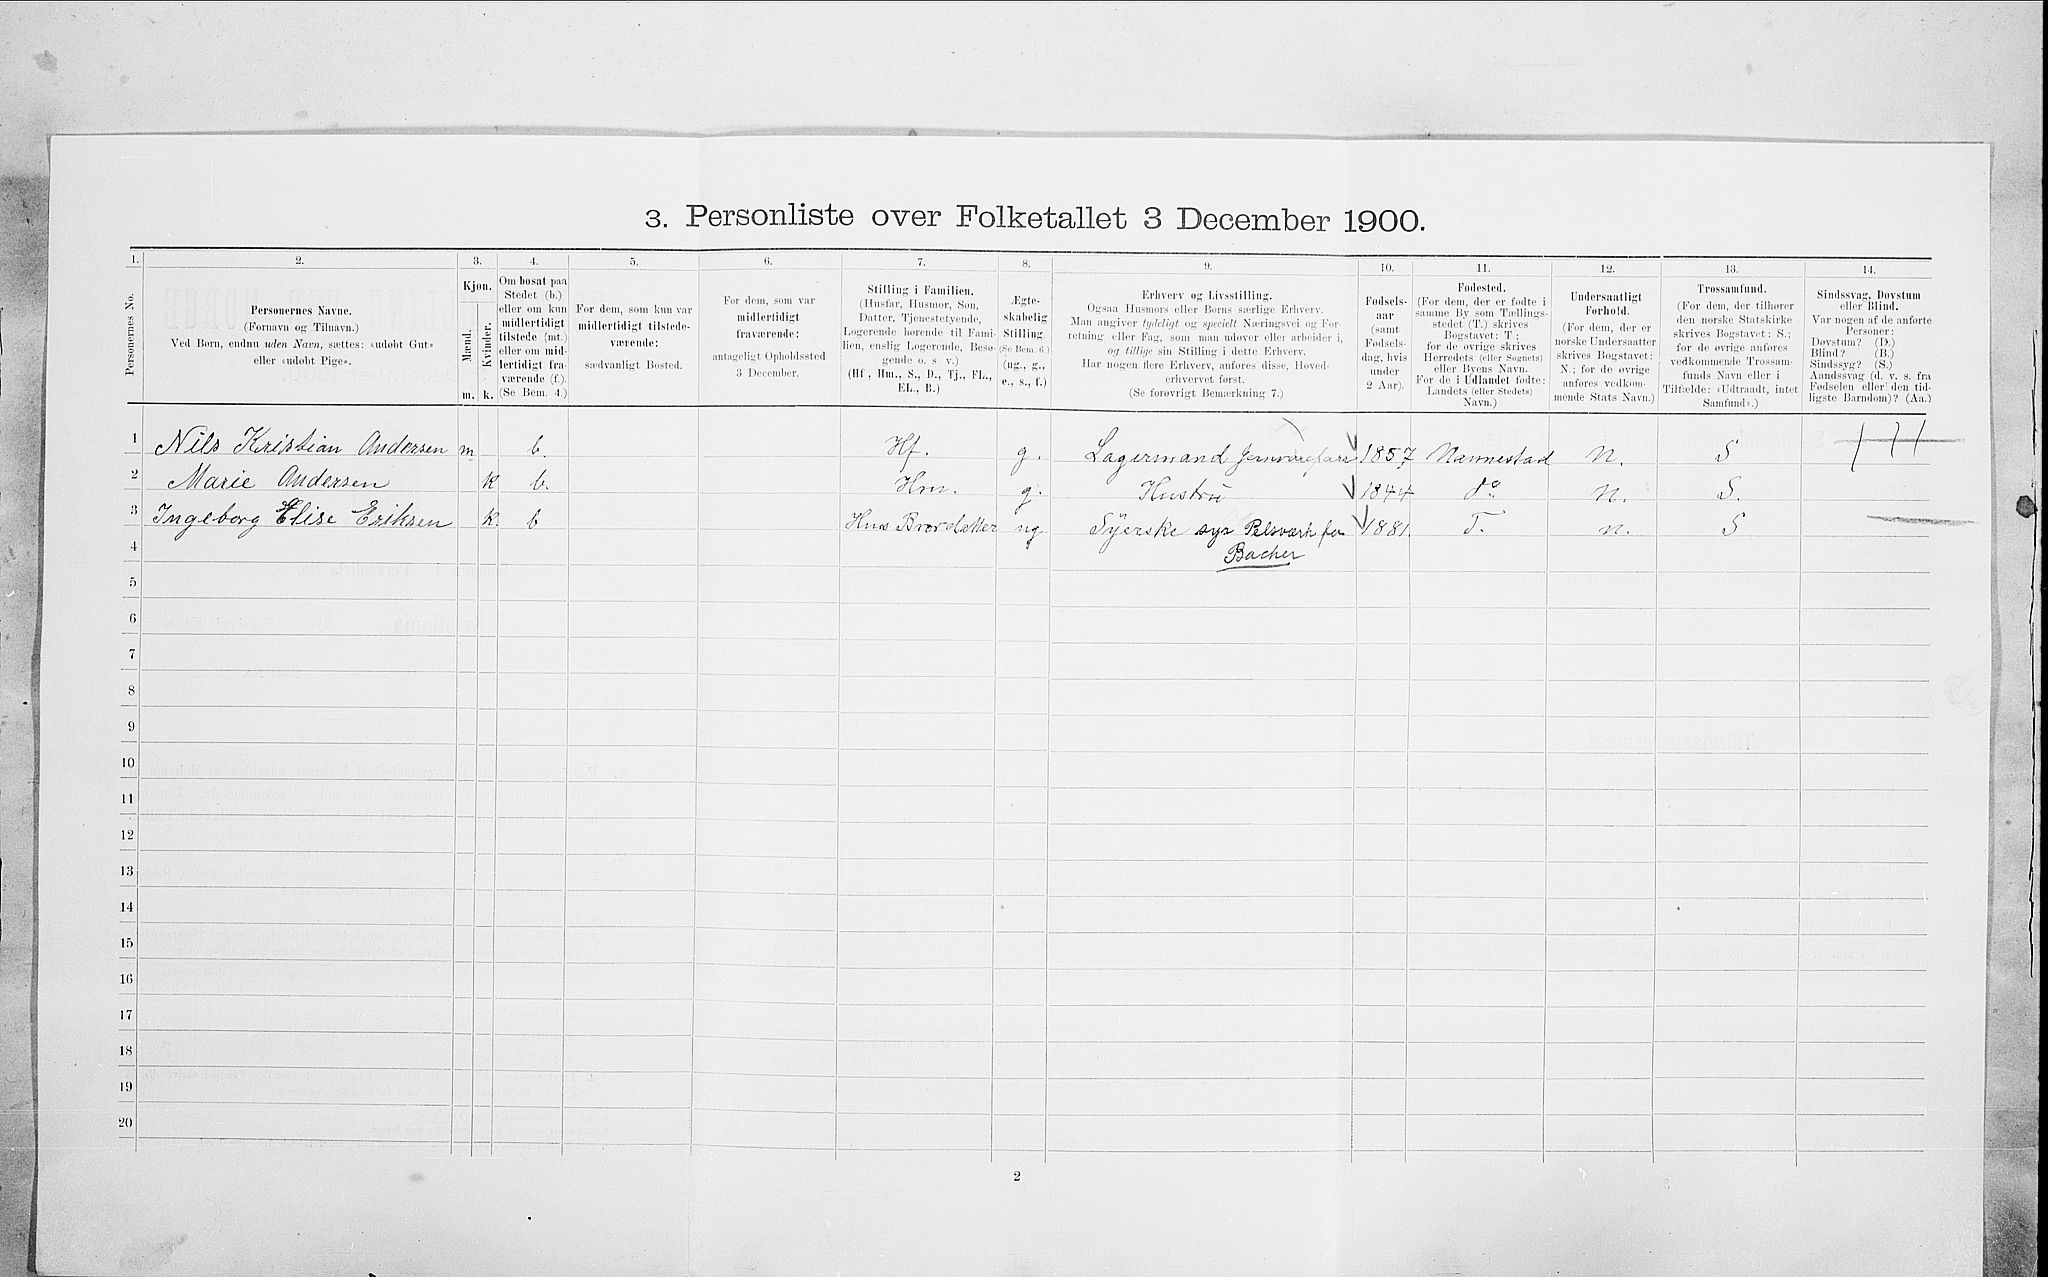 3. Personliste over Folketallet 3 December 1900.
1. 2. 3. 4. 5. 6. 7. 8. 9. 10. 11. 12. 13. 14.
Personernes No.
Personernes Navne.
(Fornavn og Tilnavn.)
Ved Børn, endnu uden Navn, sættes: «udøbt Gut»
eller «udøbt Pige».
Kjøn.
Mænd.
Kvinder.
m. k.
Om bosat paa
Stedet (b.)
eller om kun
midlertidigt
tilstede (mt.)
eller om mid-
lertidigt fra-
værende (f.).
(Se Bem. 4.)
For dem, som kun var
midlertidigt tilstede-
værende:
sædvanligt Bosted.
For dem, som var
midlertidigt
fraværende:
antageligt Opholdssted
3 December.
Stilling i Familien.
(Husfar, Husmor, Søn,
Datter, Tjenestetyende,
Logerende hørende til Fami-
lien, enslig Logerende, Besø-
gende o. s. v.)
(Hf., Hm., S., D., Tj., FL.,
EL., B.)
Ægte-
skabelig
Stilling.
(Se Bem. 6.)
(ug., g.,
e., s., f.)
Erhverv og Livsstilling.
Ogsaa Husmors eller Børns særlige Erhverv.
Man angiver tydeligt og specielt Næringsvei og For-
retning eller Fag, som man udøver eller arbeider i,
og tillige sin Stilling i dette Erhverv.
Har nogen flere Erhverv, anføres disse, Hoved-
erhvervet først.
(Se forøvrigt Bemærkning 7.)
Fødsels-
aar
(samt
Fødsels-
dag, hvis
under
2 Aar).
Fødested.
(For dem, der er fødte i
samme By som Tællings-
stedet (T.) skrives
Bogstavet: T;
for de øvrige skrives
Herredets (eller Sognets)
eller Byens Navn.
For de i Udlandet fødte:
Landets (eller Stedets)
Navn.)
Undersaatligt
Forhold.
(For dem, der er
norske Undersaatter
skrives Bogstavet:
N.; for de øvrige
anføres vedkom-
mende Stats Navn.)
Trossamfund.
(For dem, der tilhører
den norske Statskirke
skrives Bogstavet: S.;
for de øvrige anføres
vedkommende Trossam-
funds Navn eller i
Tilfælde: «Udtraadt, intet
Samfund».)
Sindssvag, Døvstum
eller Blind.
Var nogen af de anførte
Personer:
Døvstum? (D.)
Blind? (B.)
Sindssyg? (S.)
Aandssvag (d. v. s. fra
Fødselen eller den tid-
ligste Barndom)? (Aa.)
1 Nils Kristian Andersen m. b. Hf. g. Lagermand 1857 Nannestad N. S
2 Marie Andersen k b. Hm. g. Hustru 1844 do. n. S.
3 Ingeborg Elise Eriksen k. b Hus Brordatter ug Syerske syr Pelsværk for 1881. T. n. S
Bacher
4
5
6
7
8
9
10
11
12
13
14
15
16
17
18
19
20
2